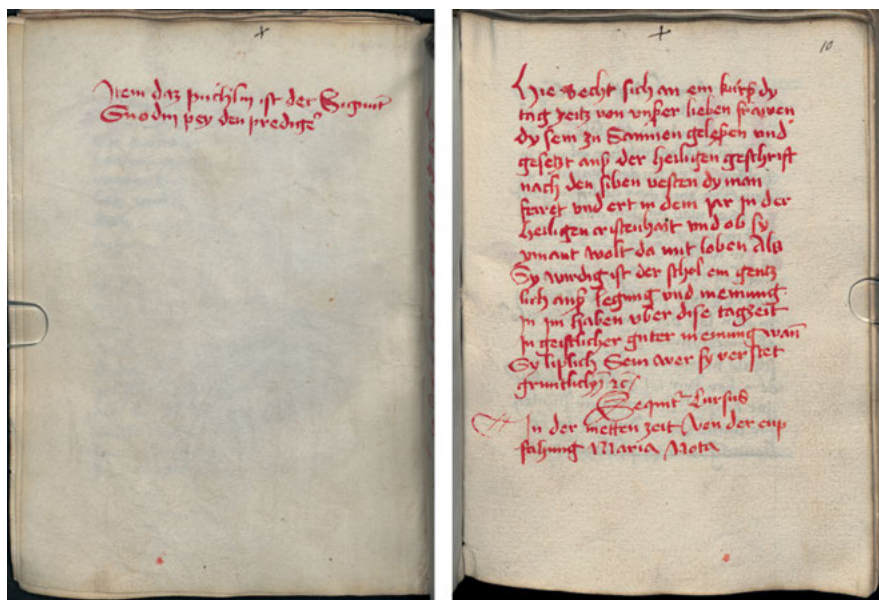 Item daz puchlin ist der Sigmut
Gnodin pey den predige
10
Hie vecht sich an ein kurß dy
tag zeitz von vnßer lieben frawen
dy sein zu Samen geleßen vnd
gesetzt auß der heiligen geschrift
nach den siben vesten dy man
feiret vnd ert in dem jar in der
heiligen cristenhait vnd ob sy
ymant wolt da mit loben Als
Sy wirdig ist der schol ein gentz
lich auß legung vnd meinung
in im haben vber dise tagzeit
in geistlicher guter meinung wan̄
Sy liplich Sein aver sy ver stet
gruntlich
Sequit Cursus
In der metten zeit Von der enp
fahung Maria Nota